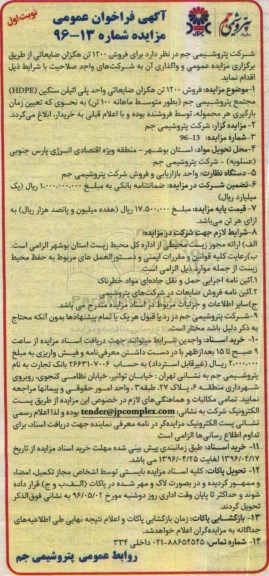 نوبت اول
آگهی فراخوان عمومی
مزایده شماره ۱۳-۹۶
پتروشیمی جم
شرکت پتروشیمی جم در نظر دارد برای فروش ۱۲۰۰ تن هگزان ضایعاتی از طریق
برگزاری مزایده عمومی و واگذاری آن به شرکت‌های واجد صلاحیت با شرایط ذیل
اقدام نماید.
۱-موضوع مزایده: فروش ۱۲۰۰ تن هگزان ضایعاتی واحد پلی اتیلن سنگین (HDPE)
مجتمع پتروشیمی جم (بطور متوسط ماهانه ۱۰۰ تن) به نحوی که تعیین زمان
بارگیری هر محموله، توسط فروشنده بوده و با اعلام قبلی به خریدار، ابلاغ می‌گردد.
۲- مزایده گزار: شرکت پتروشیمی جم
۳-شماره مزایده: 13-96
۴-محل تحویل مواد: استان بوشهر - منطقه ویژه اقتصادی انرژی پارس جنوبی
(عسلویه) - شرکت پتروشیمی جم
۵-دستگاه نظارت: واحد بازاریابی و فروش شرکت پتروشیمی جم
۶-تضمین شرکت در مزایده: ضمانتنامه بانکی به مبلغ ۱.۰۰۰.۰۰۰.۰۰۰ ریال (یک
میلیارد ریال)
۷- قیمت پایه مزایده: مبلغ ۱۷.۵۰۰.۰۰۰ ریال (هفده میلیون و پانصد هزار ریال) به
ازای هر تن می‌باشد.
۸-شرایط لازم جهت شرکت در مزایده:
الف) ارائه مجوز زیست محیطی از اداره کل محیط زیست استان بوشهر الزامی است.
ب) رعایت کلیه قوانین و مقررات ایمنی و دستورالعمل های مربوط به حفظ محیط
زیست از جمله موارد ذیل الزامی است.
۱.آئین نامه اجرایی حمل و نقل جاده‌ای مواد خطرناک
۲.آئین نامه فروش ضایعات در شرکت‌های پتروشیمی
ج) سایر اطلاعات و جزئیات مربوط در اسناد مزایده مندرج می باشد.
۹-شرکت پتروشیمی جم در رد یا قبول هر یک یا تمام پیشنهادها بدون آنکه محتاج
به ذکر دلیل باشد مختار است.
۱۰- خرید اسناد: واجدین شرایط میتوانند جهت دریافت اسناد مزایده از ساعت
۹ صبح تا ۱۵ بعدازظهر با در دست داشتن معرفی‌نامه و فیش واریزی به مبلغ
ریال (غیرقابل استرداد) به حساب بانک تجارت به نام
پتروشیمی جم به نشانی تهران: خیابان توانیر، خیابان نظامی گنجوی، روبروی
شهرداری منطقه ۶، پلاک ۲۷، طبقه ۲، واحد امور حقوقی و پیمانها مراجعه
نمایید. تمامی مکاتبات و هماهنگی‌های لازم در خصوص این مزایده از طریق پست
الکترونیک شرکت به نشانی: tender@jpcomplex.com بوده و لذا اعلام رسمی
نشانی پست الکترونیک مزایده‌گر در نامه معرفی نماینده جهت دریافت اسناد، برای
تداوم اطلاع رسانی‌ها الزامی است.
۱۱- خرید اسناد: طبق زمانبندی پیش بینی شده مهلت خرید اسناد مزایده از تاریخ
۱۳۹۶/۰۴/۱۷ لغایت ۱۳۹۶/۰۴/۲۵ می باشد.
۱۲- تحویل پاکات: کلیه اسناد مزایده بایستی توسط اشخاص مجاز تکمیل، امضاء
و ممهور گردیده و در بصورت لاک و مهر شده در پاکات (الف، ب و ج) قرار داده
شوند و حداکثر تا پایان وقت اداری روز دوشنبه مورخ ۹۶/۰۵/۰۲ به نشانی فوق‌الذکر
تحویل گردند.
۱۳- بازگشایی پاکات: زمان بازگشایی پاکات و اعلام نتیجه نهایی طی اطلاعیه‌های
جداگانه به مزایده‌گران اعلام خواهد شد.
۱۴- شماره تماس: ۸۸۶۵۴۵۴۵-۰۲۱ داخلی ۳۳۴
روابط عمومی پتروشیمی جم